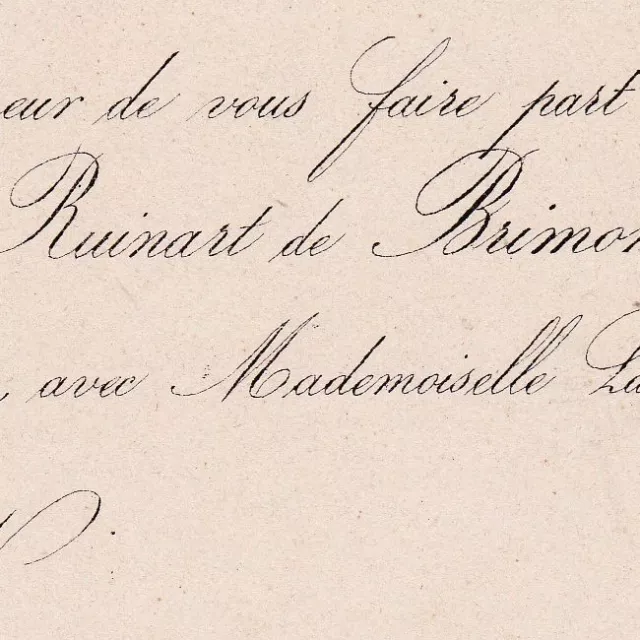 eur de vous faire part
Ruinart de Brimon
, avec Mademoiselle La